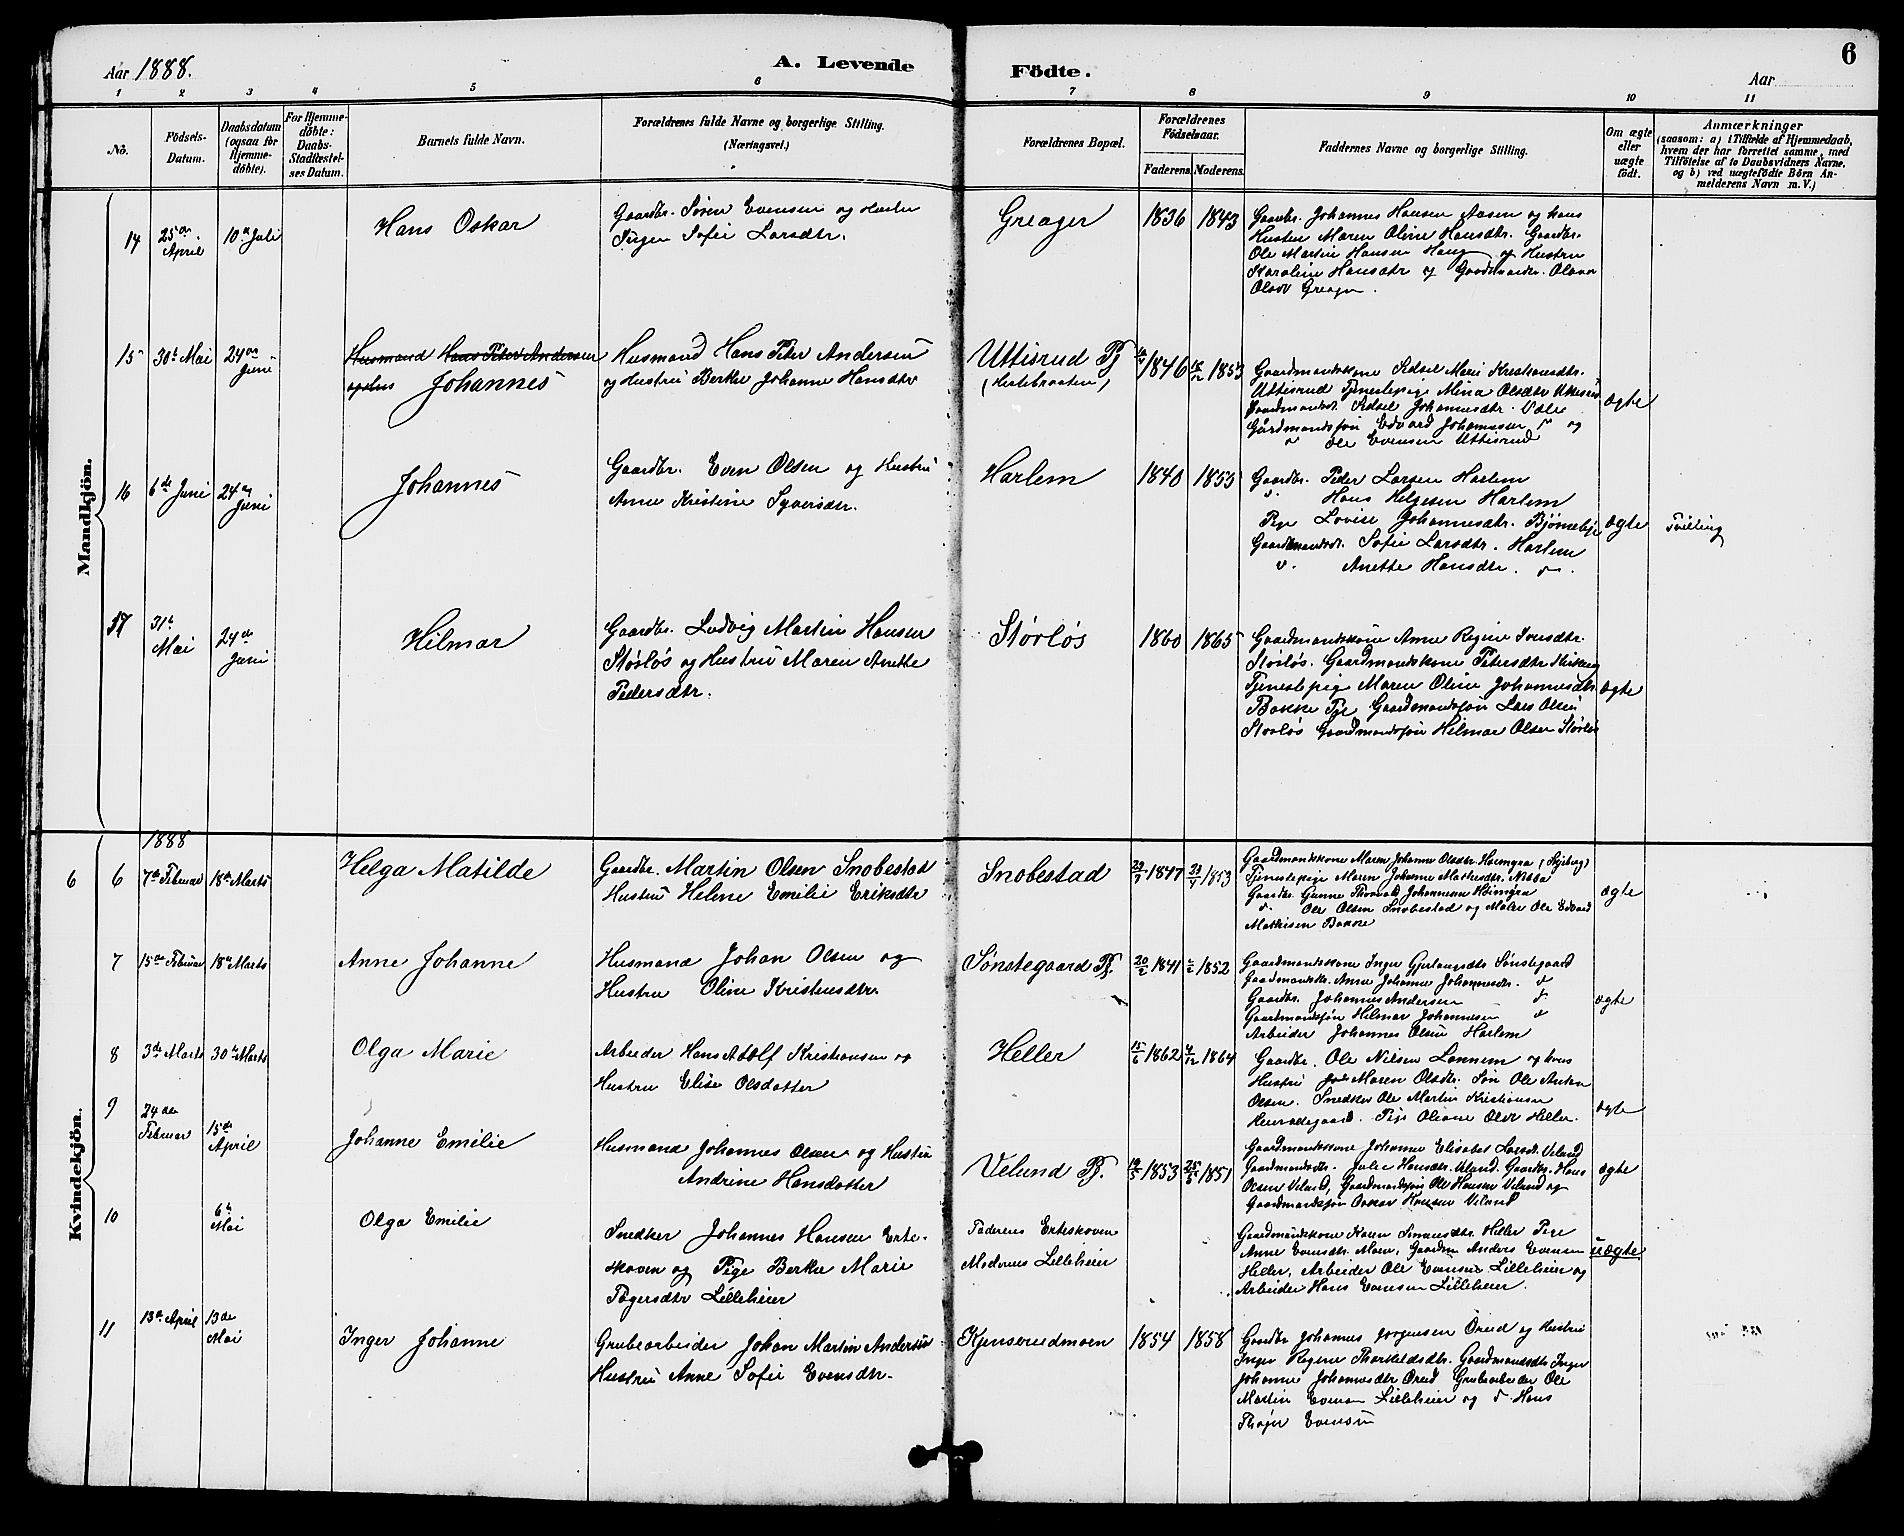 Aar 1888.
A. Levende Födte.
Aar
6
1 2 3 4 5 6 7 8 9 10 11
No.
Födsels-Datum.
Daabsdatum (ogsaa for Hjemme-döbte).
For Hjemme-döbte: Daabs-Stadfæstel-ses Datum.
Barnets fulde Navn.
Forældrenes fulde Navne og borgerlige Stilling. (Næringsvei.)
Forældrenes Bopæl.
Forældrenes Födselsaar.
Faderens. Moderens.
Faddernes Navne og borgerlige Stilling.
Om ægte eller uægte födt.
Anmærkninger
(saasom: a) i Tilfælde af Hjemmedaab, hvem der har forrettet samme, med Tilföielse af to Daabsvidners Navne, og b) ved uægtefödte Börn An-melderens Navn m. V.)
Mandkjön.
14 25de April 10de Juli
Hans Oskar
Gaardbr. Søren Evensen og Hustru
Inger Sofie Larsdtr.
Greager 1836 1843
Gaardbr. Johannes Hansen Aasen og hans
Hustru Maren Oline Hansdtr. Gaardbr.
Ole Martin Hansen Haug og Hustru
Karoline Hansdtr og Gaardmandsdtr. Olava
Olsdtr Greager.
15 30te Mai 24de Juni
Husmand Hans Peter Andersen
Johannes
Husmand Hans Peter Andersen
og Hustru Berthe Johanne Hansdtr
Uttisrud Pl
(Hestebraaten)
1846 1853
Gaardmandskone Kidsel Marie Kristiansdtr.
Uttisrud Tjenestepige Mina Olsdtr Uttisrud
Gaardmandsdt. Kidsel Johannesdtr. Væle
Gårdmandssøn Edvard Johannessen " og
" Ole Evensen Uttisrud
ægte
16 6de Juni 24de Juni
Johannes
Gaardbr. Even Olsen og Hustru
Anne Kristine Syversdtr.
Harlem 1840 1855
Gaardbr. Peder Larsen Harlem
" Hans Helgesen Harlem
Pige Lovise Johannesdtr. Bjørneby
Gaardmandsdt. Sofie Larsdtr. Harlem
" Anette Hansdtr. "
ægte
Tvilling
17 31te Mai 24de Juni
Hilmar
Gaardbr. Ludvig Martin Hansen
Størløs og Hustru Maren Anette
Pedersdtr.
Størløs 1860 1865
Gaardmandskone Anne Regine Iversdtr.
Størløs. Gaardmandskone Petersdtr Kirkeng
Tjenestepige Maren Oline Johannesdtr
Bakke Pge Gaardmandssøn Lars Olsen
Størløs Gaardmandssøn Hilmar Olsen Størløs
ægte
Kvindekjön.
1888
6 6 7de Februar 18de Marts
Helga Matilde
Gaardbr. Martin Olsen Snobestad
Hustru Helene Emilie Eriksdtr
Snobestad 29/7 1847 23/7 1853
Gaardmandskone Maren Johanne Olsdtr Høimyra (Skjeberg)
Tjenestepige Maren Johanne Mathisdtr.
Gaardbr. Gunne Thorvald Johannesen Høimyra
" Ole Olsen Snobestad og Maler Ole Edvard
Mathisen Bakke
ægte
7 15de Februar 18de Marts
Anne Johanne
Husmand Johan Olsen og
Hustru Oline Kristensdtr.
Sønstegaard Pl. 20/2 1841 1852
Gaardmandskone Inger Gjerlaugsdtr Sønstegaard
Gaardmandsdtr. Anne Johanne Johannesdtr. "
Gaardbr. Johannes Andersen "
Gaardmandssøn Hilmar Johannesen "
Arbeider Johannes Olsen Harlem
ægte
8 3de Marts 30te Marts
Olga Marie
Arbeider Hans Adolf Kristiansen og
Hustru Elise Olsdatter
Heller 15/6 1862 4/12 1864
Gaardbr. Ole Nilsen Lønnem og hans
Hustru Maren Olsdtr. Søn Ole Anton
Olsen. Snedker Ole Martin Kristiansen
Pige Oliane Olsdtr Heller.
ægte
9 24de Februar 15de April
Johanne Emilie
Husmand Johannes Olsen og Hustru
Andrine Hansdatter
Velund Pl. 1853 1851
Gaardmandskone Johanne Elisabet Larsdt. Velund
Gaardmandsdtr. Julie Hansdtr. Velund. Gaardbr. Hans
Olsen Velund, Gaardmandssøn Ole Hansen Velund og
Gaardmandssøn Oskar Hansen Velund
ægte
10 6te Mai
Olga Emilie
Snedker Johannes Hansen Erte-
skoven og Pige Berthe Marie
Lilleheier
Faderens Erteskoven
Moderens Lilleheier
Gaardmandskone Karen Simensdtr. Heller Pige
Anne Evensdtr. Moen, Gaardm. Anders Evensen
Heller, Arbeider Ole Evensen Lilleheier og
Arbeider Hans Evensen Lilleheier.
uægte
11 13de April 13de Mai
Inger Johanne
Grubearbeider Johan Martin Andersen
Hustru Anne Sofie Evensdtr.
Kjenserudmoen 1854 1858
Gaardbr Johannes Jørgensen Ørud og Hustru
Inger Regine Thorkildsdtr. Gaardmandsdtr Inger
Johanne Johannesdtr Ørud Grubearbeider Ole
Martin Evensen Lilleheier og " Hans
Thøger Evensen